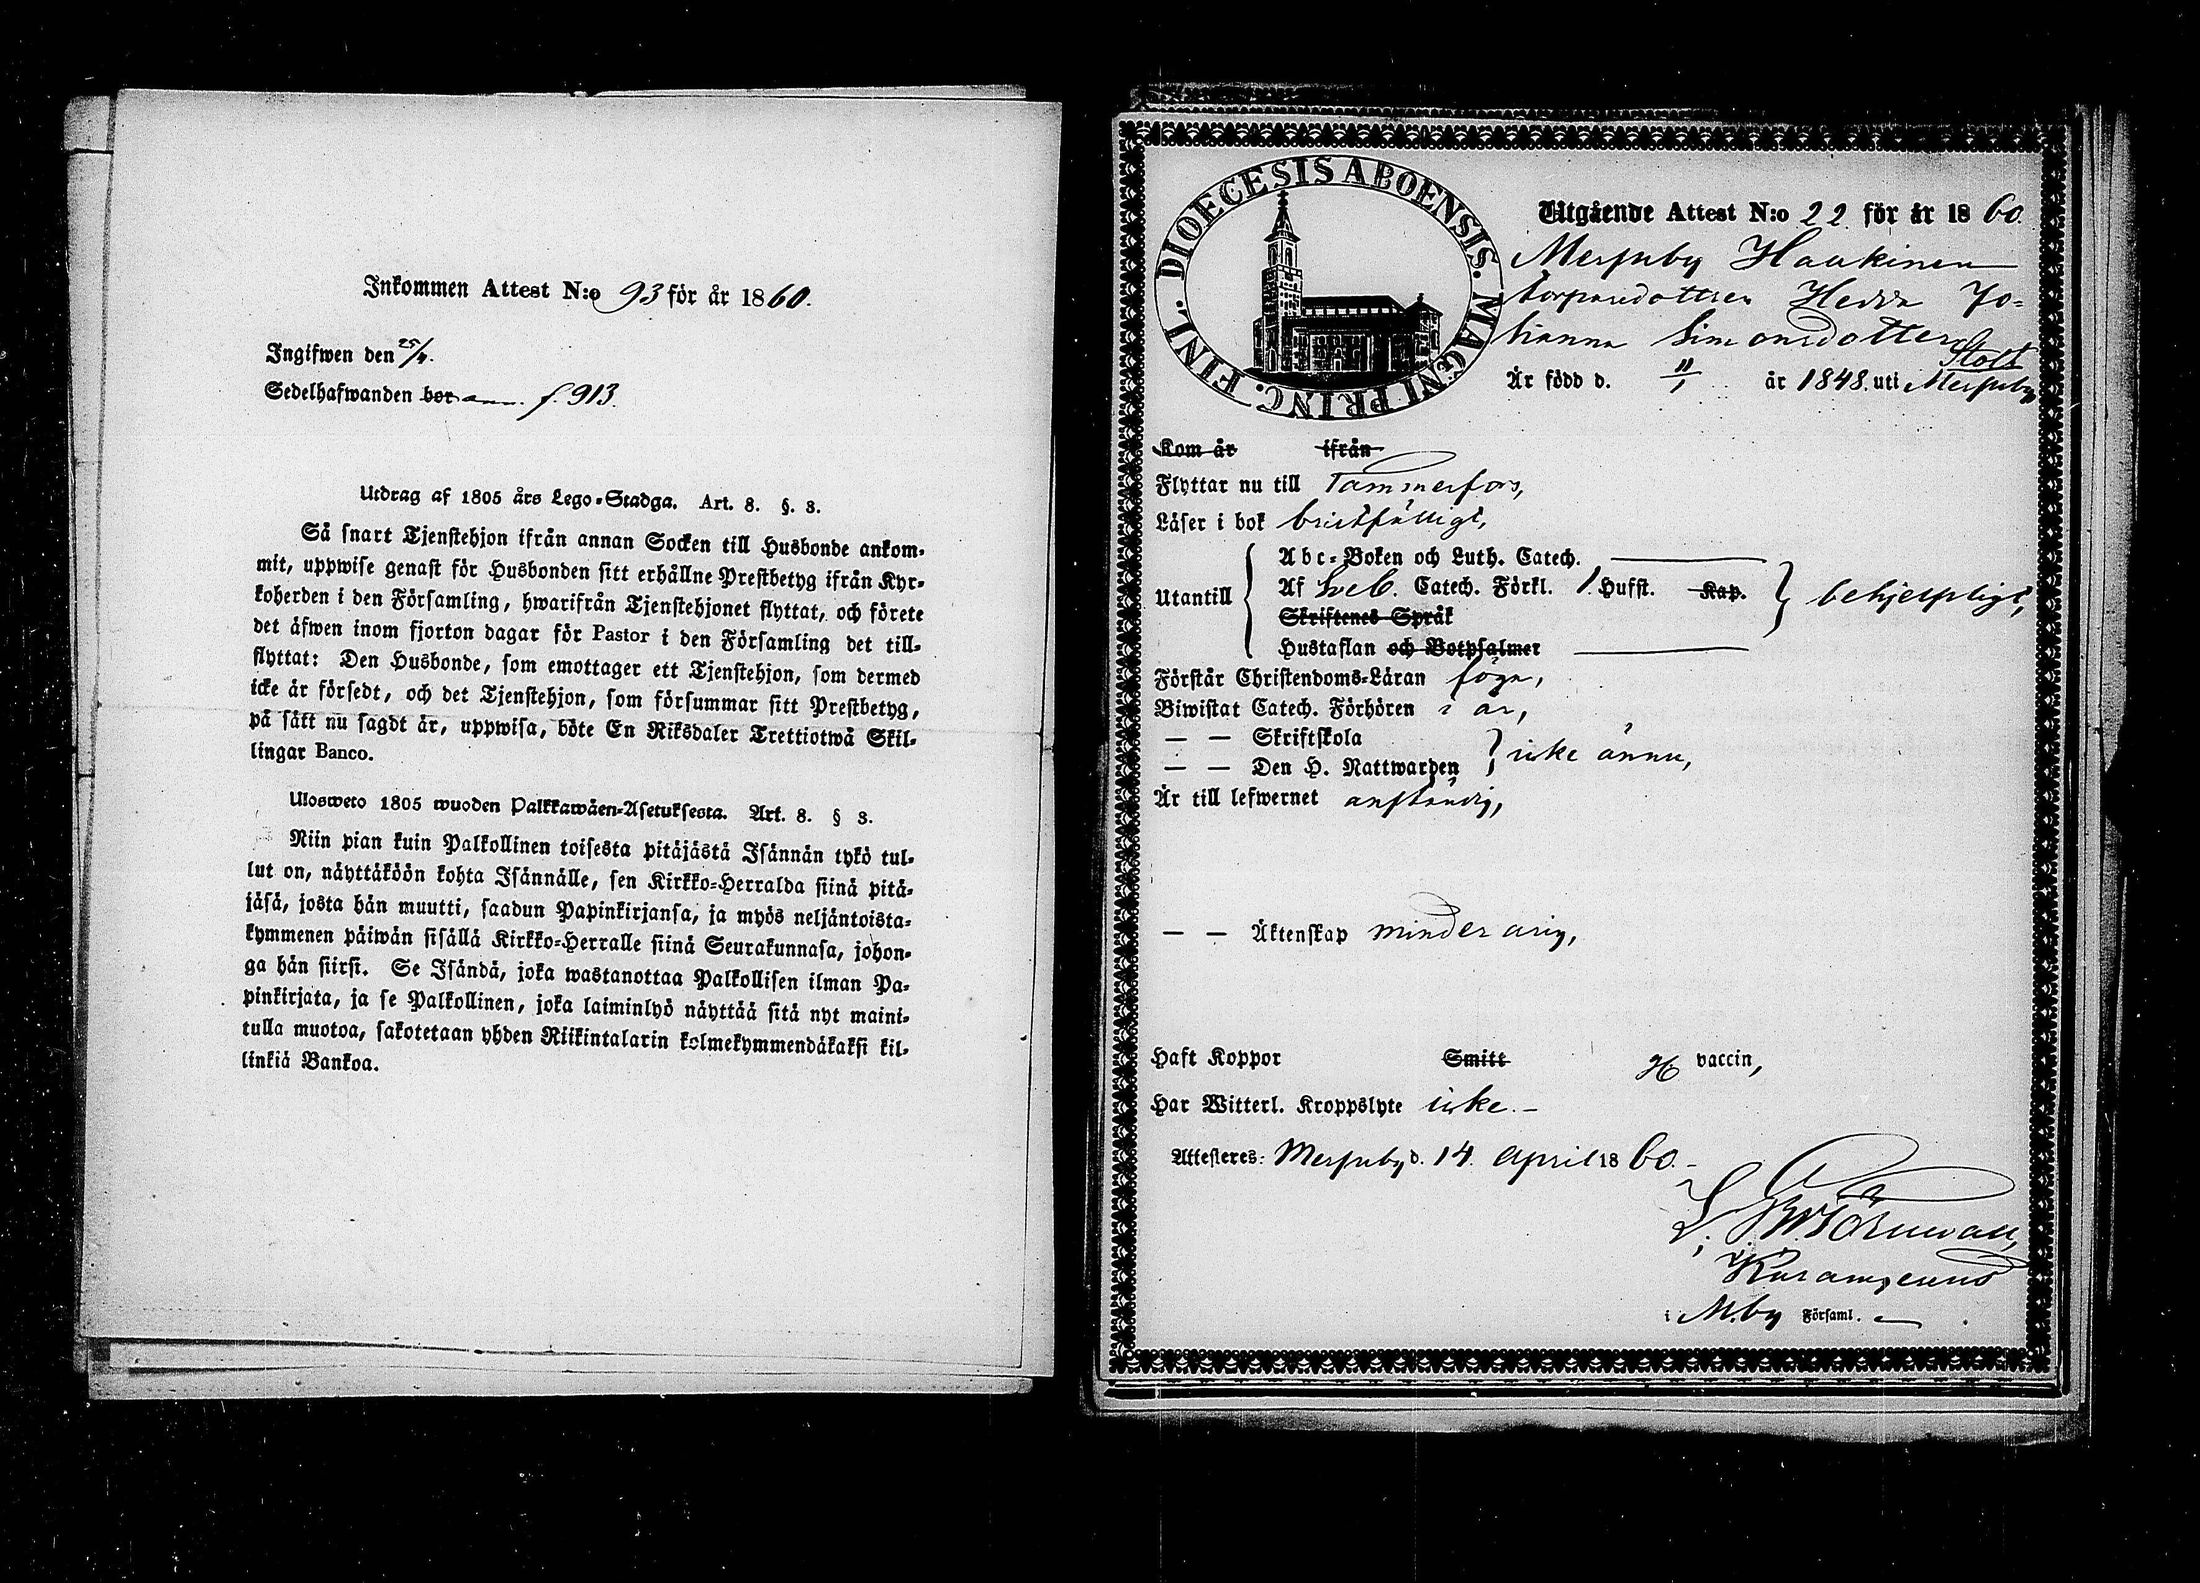 Inkommen Attest N:o 93 för år 1860.
Ingifwen den 25/4.
Sedelhafwanden bor ann. f. 913.
Utdrag af 1805 års Lego-Stadga. Art. 8. §. 3.
Så snart Tjenstehjon ifrån annan Socken till Husbonde ankom-
mit, uppwise genast för Husbonden sitt erhållne Prestbetyg ifrån Kyr-
koherden i den Församling, hwarifrån Tjenstehjonet flyttat, och förete
det äfwen inom fjorton dagar för Pastor i den Församling det till-
flyttat: Den Husbonde, som emottager ett Tjenstehjon, som dermed
icke är försedt, och det Tjenstehjon, som försummar sitt Prestbetyg,
på sätt nu sagdt är, uppwisa, böte En Riksdaler Trettiotwå Skil-
lingar Banco.
Ulosweto 1805 wuoden Palkkawäen-Asetuksesta. Art. 8. § 3.
Niin pian kuin Palkollinen toisesta pitäjästä Isännän tykö tul-
lut on, näyttäköön kohta Isännälle, sen Kirkko-Herralda siinä pitä-
jäsä, josta hän muutti, saadun Papinkirjansa, ja myös neljäntoista-
kymmenen päiwän sisällä Kirkko-Herralle siinä Seurakunnasa, johon-
ga hän siirsi. Se Isändä, joka wastanottaa Palkollisen ilman Pa-
pinkirjata, ja se Palkollinen, joka laiminlyö näyttää sitä nyt maini-
tulla muotoa, sakotetaan yhden Riikintalarin kolmekymmendäkaksi kil-
linkiä Bankoa.
DIOECESIS ABOENSIS. MAGNI PRINC. FINL.
Utgående Attest N:o 22 för år 1860.
Messuby Haukinen
torparedottren Hedda Jo-
hanna Simonsdotter
Stolt
Är född d. 11/1 år 1848. uti Messuby
Kom år ifrån
Flyttar nu till Tammerfors,
Läser i bok bristfälligt,
Abc-Boken och Luth. Catech.
Utantill Af Sveb. Catech. Förkl. 1. Hufst. Kap. behjelpligt,
Skriftenes Språk
Hustaflan och Botpsalmer
Förstår Christendoms-Läran föga,
Biwistat Catech. Förhören i år,
— — Skriftskola
— — Den H. Nattwarden icke ännu,
Är till lefwernet anständig,
— — Äktenskap minderårig,
Haft Koppor Smitt H vaccin,
Har Witterl. Kroppslyte icke. -
Attesteres: Messuby d. 14. April 1860. -
Törnwall,
i M.by Församl.